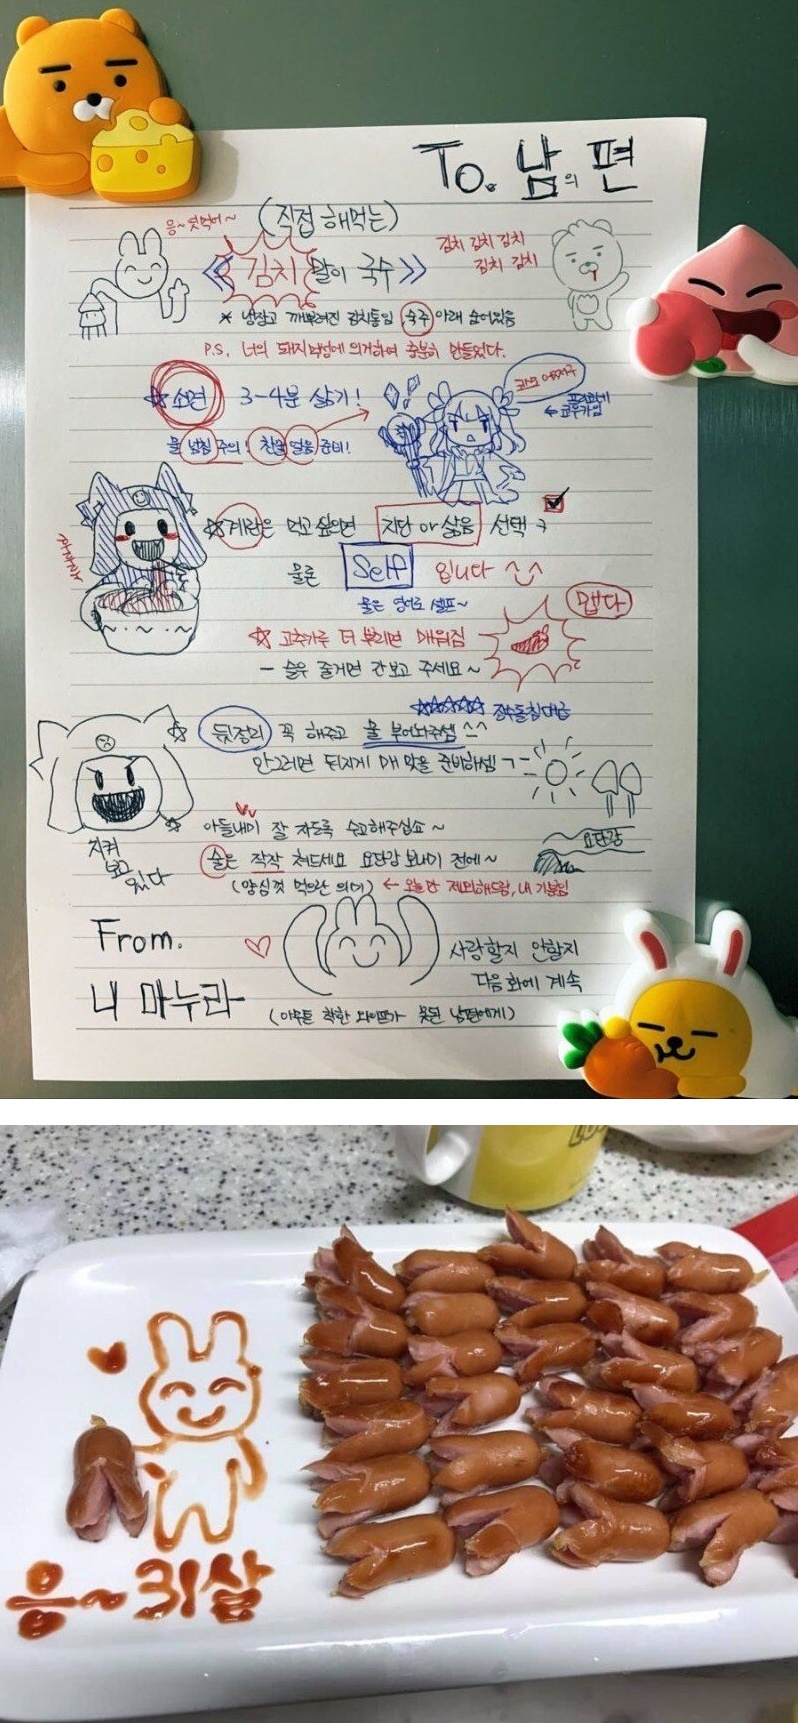 To. 남의 편
(직접 해먹는)
응~ 엿먹어~
《김치 말이 국수》
김치 김치 김치
김치 김치
* 냉장고 깨부셔진 김치통임 숙주 아래 숨어있음
P.S. 너의 돼지력성에 의거하여 충분히 만들었다.
☆ 소면 3-4분 삶기!
물 넘침 주의! 찬물 얼음 준비!
☆ 계란은 먹고 싶으면 지단 or 삶음 선택 ㅋ
물론 Self 입니다 ^^
물은 영어로 셀프~
맵다
☆ 고춧가루 더 뿌리면 매워짐
- 슬우 줄거면 간보고 주세요~
☆ 뒷정리 꼭 해주고 물 부어놔주셈 ^^
안그러면 뒤지게 매 맞을 준비하셈 ㄱ-
아들내미 잘 자도록 수고해주십쇼~
지켜
보고
있다
술은 작작 쳐드세요 요단강 보내기 전에~
요단강
(양심껏 먹으란 의미) ← 오늘만 제외해드림, 내 기분임
From.
내 마누라
♡ 사랑할지 안할지
다음화에 계속
(아주튼 착한 와이프가 못된 남편에게)
응~31살